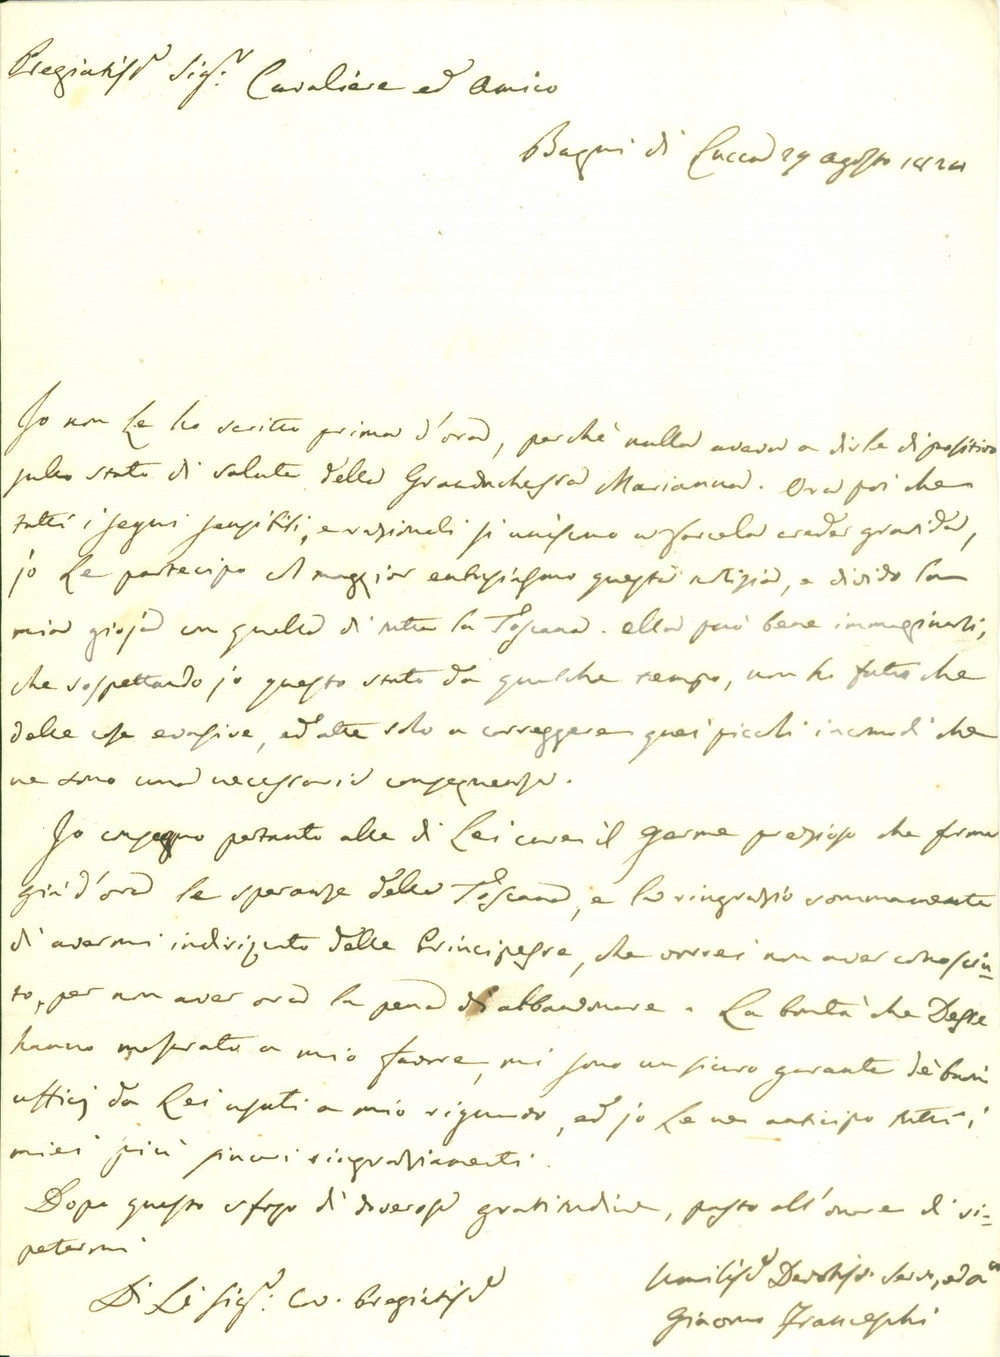 Pregiatis.º Sig.r Cavaliere ed Amico
Bagni di Lucca 29 agosto 1824
Io non Le ho scritto prima d'ora, perchè nulla aveva a dirle di positivo
sullo stato di salute della Granduchessa Marianna. Ora poi che
tutti i segni sensibili, e razionali si uniscono a farcela creder gravida,
io Le partecipo col maggior entusiasmo questa notizia, e divido la
mia gioja con quella di tutta la Toscana. Ella può bene immaginarsi,
che sospettando io questo stato da qualche tempo, non ho fatto che
delle cose evasive, ed atte solo a correggere quei piccoli incomodi che
ne sono una necessaria conseguenza.
Io consegno pertanto alle di Lei cure il germe prezioso che forma
già d'ora le speranze della Toscana, e la ringrazio sommamente
di avermi indirizzato delle Principesse, che vorrei non aver conosciu-
to, per non aver ora la pena di abbandonare. La bontà che Desse
hanno mostrato a mio favore, mi sono un sicuro garante de' buoni
ufficj da Lei usati a mio riguardo, ed io Le ne anticipo tutti i
miei più sinceri ringraziamenti.
Dopo questo sfogo di doverosa gratitudine, passo all'onore di ri-
petermi
Di Lei Sig.r Cav. Pregiatis.º
Umilis.º Devotis.º Serv., ed A.co
Giacomo Franceschi